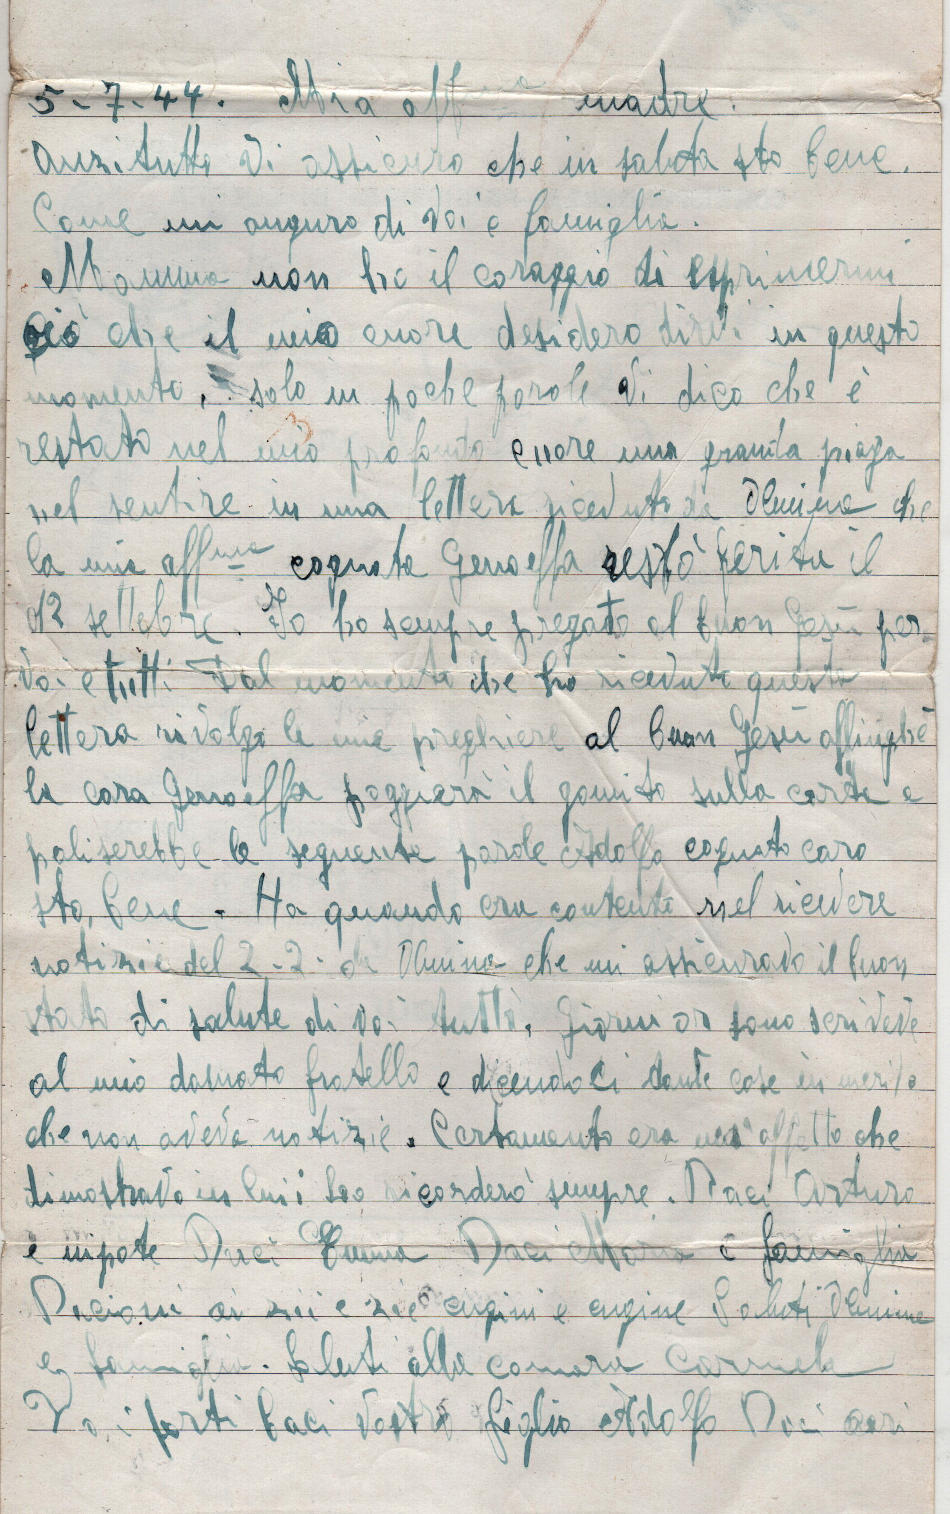 5-7-44. Mia aff madre.
Anzitutto vi assicuro che in saluta sto bene.
Come mi auguro di voi e famiglia.
Mamma non ho il coraggio di esprimermi
ciò che il mio cuore desidera dirvi in questo
momento, solo in poche parole vi dico che è
restato nel mio profondo cuore una granda piaga
nel sentire in una lettera riceduta da che
la mia affma cognata Genoeffa restò ferita il
12 settebre. Io ho sempre pregato al buon Gesù per
voi e tutti Dal momento che ho riceduto questa
lettera rivolgo le mie preghiere al buon Gesù affinghè
la cara Genoeffa poggierà il gomito sulla carta e
le seguente parole Adolfo cognato caro
sto, bene. Ha quando era contento nel ricevere
notizie del 2-2. da che mi assicuravo il buon
stato di salute di voi tutti. Giorni or sono scrivevo
al mio fratello e dicendoci tante cose in merito
che non aveva notizie. Certamento era affetto che
dimostravo in lui lo ricorderò sempre. Baci Arturo
e nipote Baci Emma Baci Maria e famiglia
Bacioni ai zii e zie cugini e cugine Saluti
e famiglia. Saluti alla comara Carmela
Voi forti baci vostro figlio Adolfo Baci cari